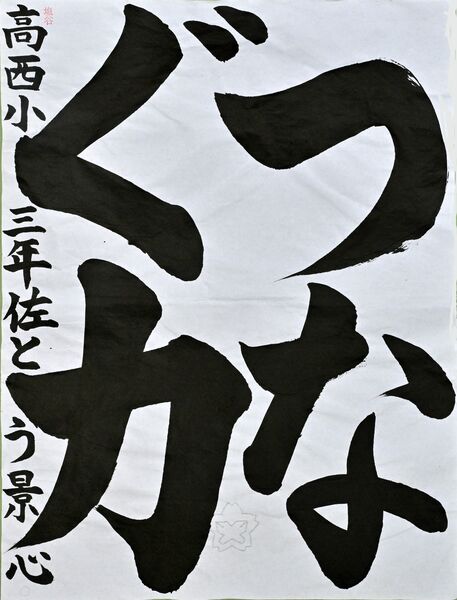 つな
ぐ力
高西小 三年佐とう景心
塩谷